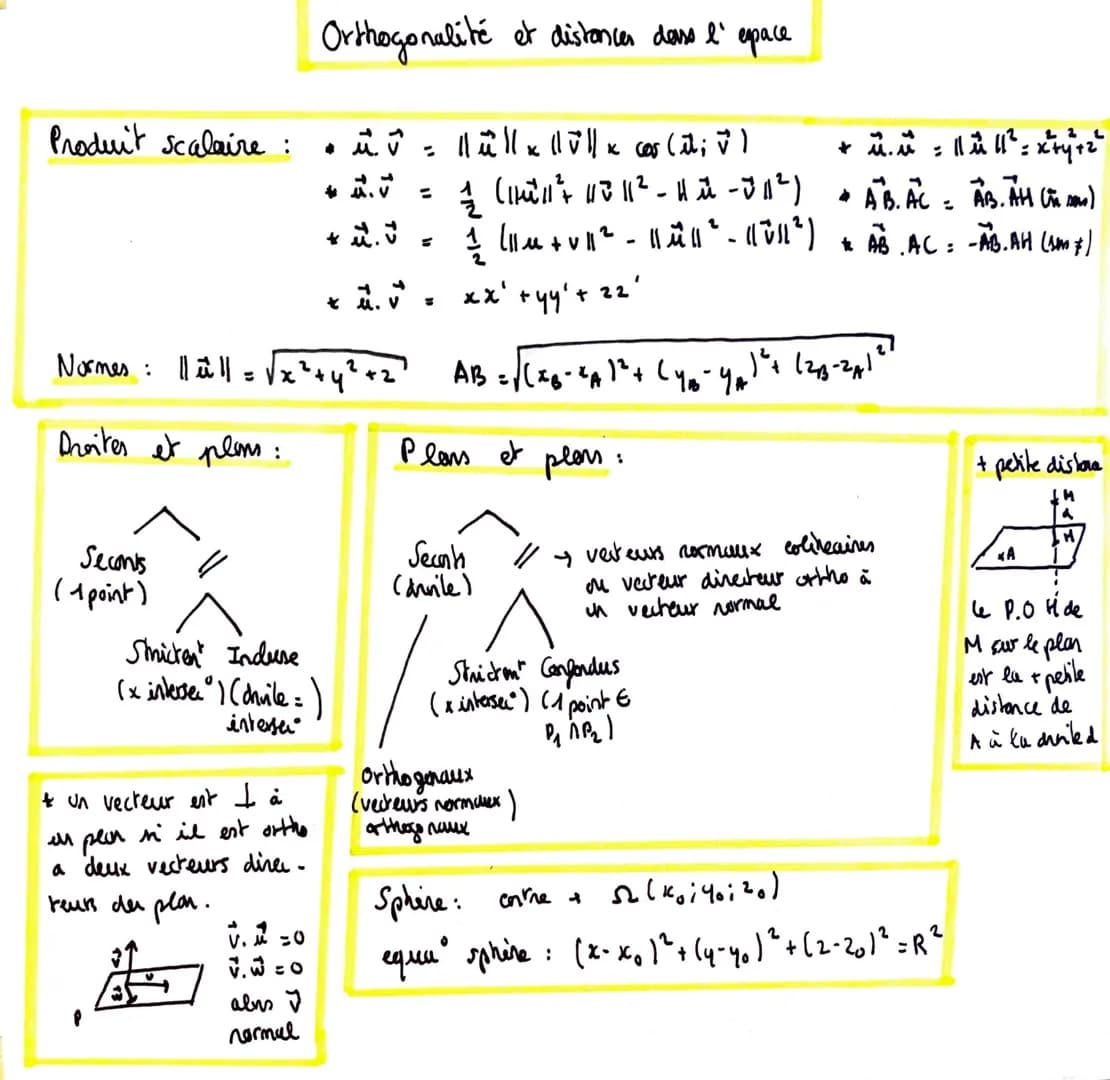 Orthogonalité et distances dans l'espace
Produit scalaire :
• u⃗.v⃗ = ||u⃗|| x ||v⃗|| x cos(u⃗; v⃗)
* u⃗.v⃗ = 1/2 (||u⃗||² + ||v⃗||² - ||u⃗ - v⃗||²)
* u⃗.v⃗ = 1/2 (||u + v||² - ||u⃗||² - ||v⃗||²)
* u⃗.v⃗ = xx' + yy' + zz'
* u⃗.u⃗ = ||u⃗||² = x²+y²+z²
* AB⃗.AC⃗ = AB⃗.AH⃗ (m̂ sens)
* AB⃗.AC = -AB⃗.AH (sens ≠)
Normes : ||u⃗|| = √(x² + y² + z)
AB = √((x_B - x_A)² + (y_B - y_A)² + (z_B - z_A)²)
Droites et plans :
Secants
(1 point)
//
Strictemt Incluse
(x intersec°) (droite =
intersec° )
Plans et plans :
Secants
(droite)
// → vecteurs normaux colineaires
ou vecteur directeur ortho à
un vecteur normal
Strictemt Confondus
(x intersec°) (1 point ∈
P₁ ∩ P₂)
Orthogonaux
(vecteurs normaux
orthogonaux )
+ petite distance
M
d
H
xA
le P.O H de
M sur le plan
est la + petite
distance de
A à la droite d
* un vecteur est ⊥ à
un plan si il est ortho
a deux vecteurs direc-
teurs du plan.
v⃗.u⃗ = 0
v⃗.w⃗ = 0
alors v⃗
normal
v⃗
u
w⃗
P
Sphère : centre → Ω(x₀; y₀; z₀)
equa° sphère : (x - x₀)² + (y - y₀)² + (z - z₀)² = R²